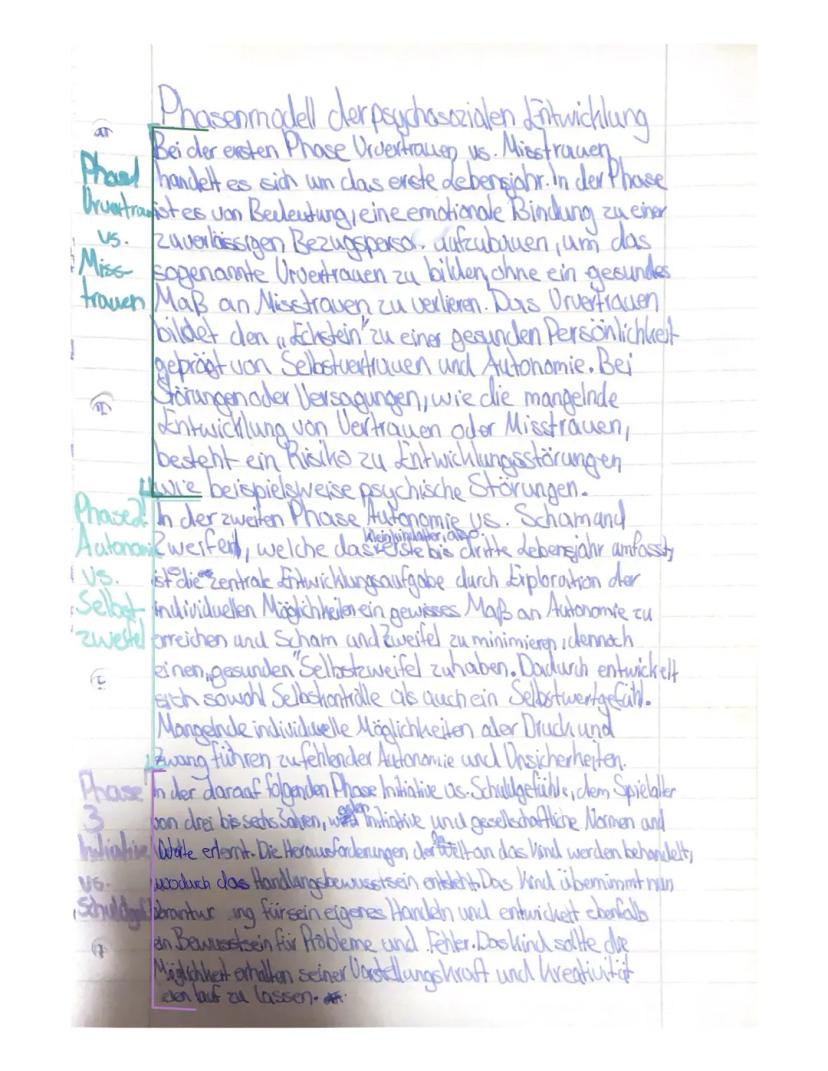 Phasenmodell der psychosozialen Entwicklung
Bei der ersten Phase Urvertrauen vs. Misstrauen
handelt es sich um das erste Lebensjahr. In der Phase
ist es von Bedeutung, eine emotionale Bindung zu einer
zuverlässigen Bezugsperson aufzubauen, um das
sogenannte Urvertrauen zu bilden, ohne ein gesundes
Maß an Misstrauen zu verlieren. Das Urvertrauen
bildet den „Eckstein" zu einer gesunden Persönlichkeit
geprägt von Selbstvertrauen und Autonomie. Bei
Störungen oder Versagungen, wie die mangelnde
Entwicklung von Vertrauen oder Misstrauen,
besteht ein Risiko zu Entwicklungsstörungen
wie beispielsweise psychische Störungen.
Phase 1
Urvertrauen
vs.
Miss-
trauen
In der zweiten Phase Autonomie vs. Scham und
Zweifel, welche das Kleinkindalter, also erste bis dritte Lebensjahr umfasst,
ist die zentrale Entwicklungsaufgabe durch Exploration der
individuellen Möglichkeiten ein gewisses Maß an Autonomie zu
erreichen und Scham und Zweifel zu minimieren, dennoch
einen „gesunden" Selbstzweifel zu haben. Dadurch entwickelt
sich sowohl Selbstkontrolle als auch ein Selbstwertgefühl.
Mangelnde individuelle Möglichkeiten oder Druck und
Zwang führen zu fehlender Autonomie und Unsicherheiten.
Phase 2
Autonomie
vs.
Selbst-
zweifel
In der darauf folgenden Phase Initiative vs. Schuldgefühle, dem Spielalter
von drei bis sechs Jahren, Initiative und gesellschaftliche Normen und
Werte erlernt. Die Herausforderungen der Welt an das Kind werden behandelt,
wodurch das Handlungsbewusstsein entsteht. Das Kind übernimmt nun
für sein eigenes Handeln und entwickelt ebenfalls
ein Bewusstsein für Probleme und Fehler. Das Kind sollte die
Möglichkeit erhalten seiner Vorstellungskraft und Kreativität
den lauf zu lassen.
Phase
3
Initiative
vs.
Schuldgef